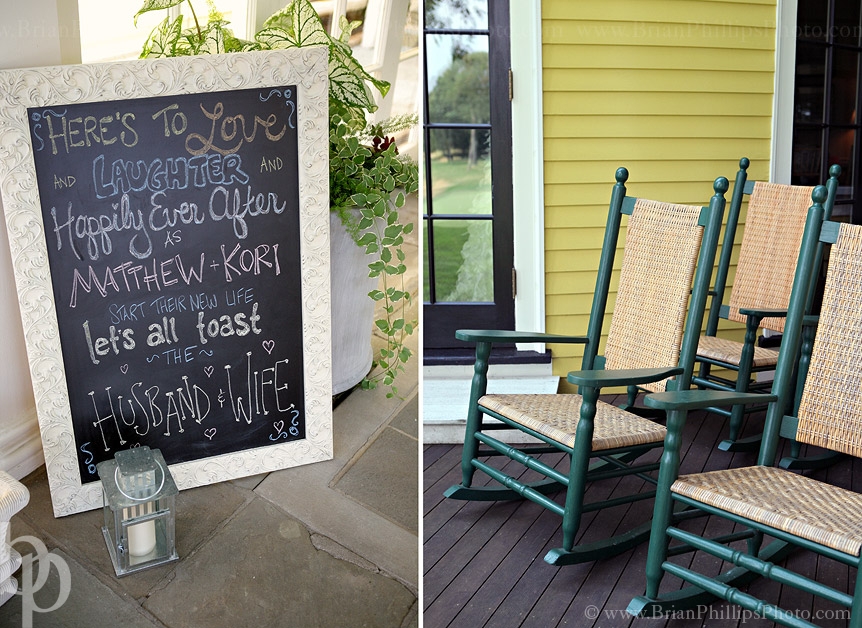 HERE'S TO Love
AND LAUGHTER AND
Happily Ever After
AS
MATTHEW + KORI
START THEIR NEW LIFE
let's all toast
~ THE ~
HUSBAND & WIFE
bp
© www.BrianPhillipsPhoto.com